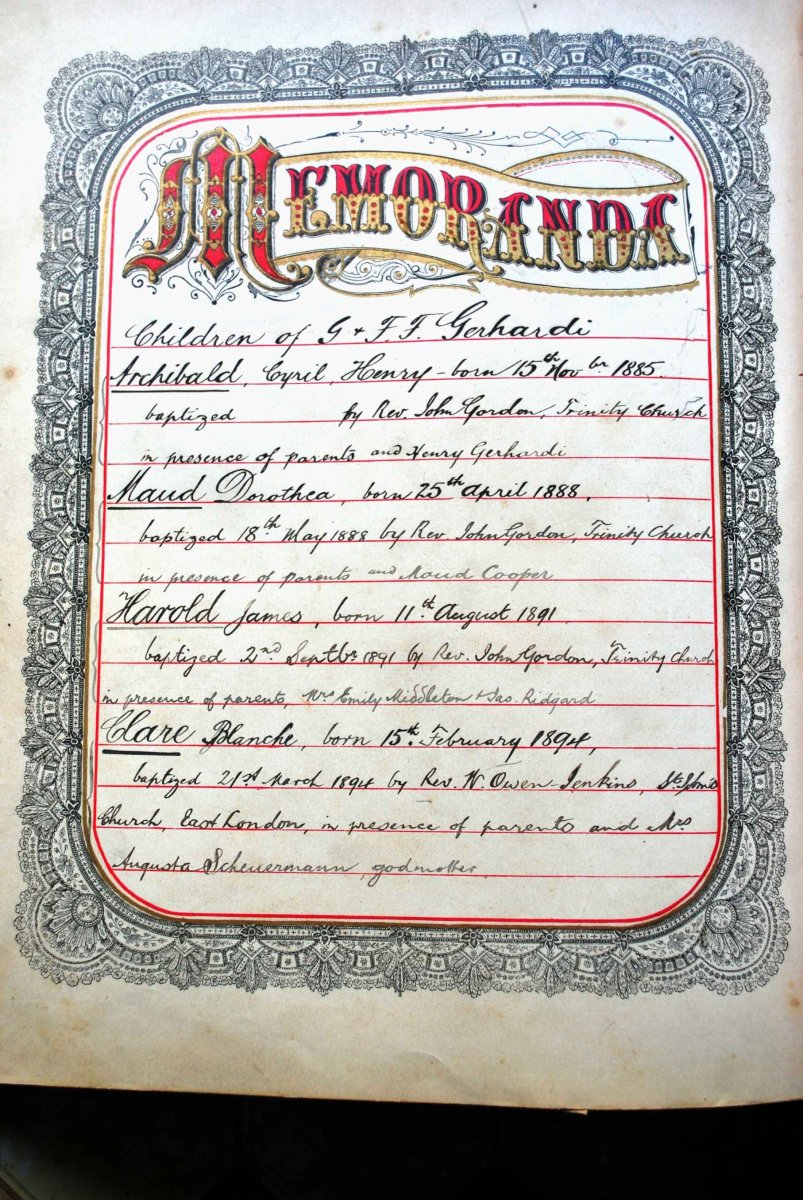 MEMORANDA
Children of G & F. F. Gerhardi
Archibald, Cyril, Henry - born 15th Novbr 1885.
baptized by Rev. John Gordon, Trinity Church
in presence of parents and Henry Gerhardi
Maud Dorothea, born 25th April 1888,
baptized 18th May 1888 by Rev. John Gordon, Trinity Church
in presence of parents and Maud Cooper
Harold James, born 11th August 1891,
baptized 2nd Septbr 1891 by Rev. John Gordon, Trinity Church
in presence of parents, Mrs Emily Middleton & Jas. Ridgard
Clare Blanche, born 15th February 1894,
baptized 21st March 1894 by Rev. W. Owen-Jenkins, St. John's
Church, East London, in presence of parents and Mrs
Augusta Scheuermann, godmother.